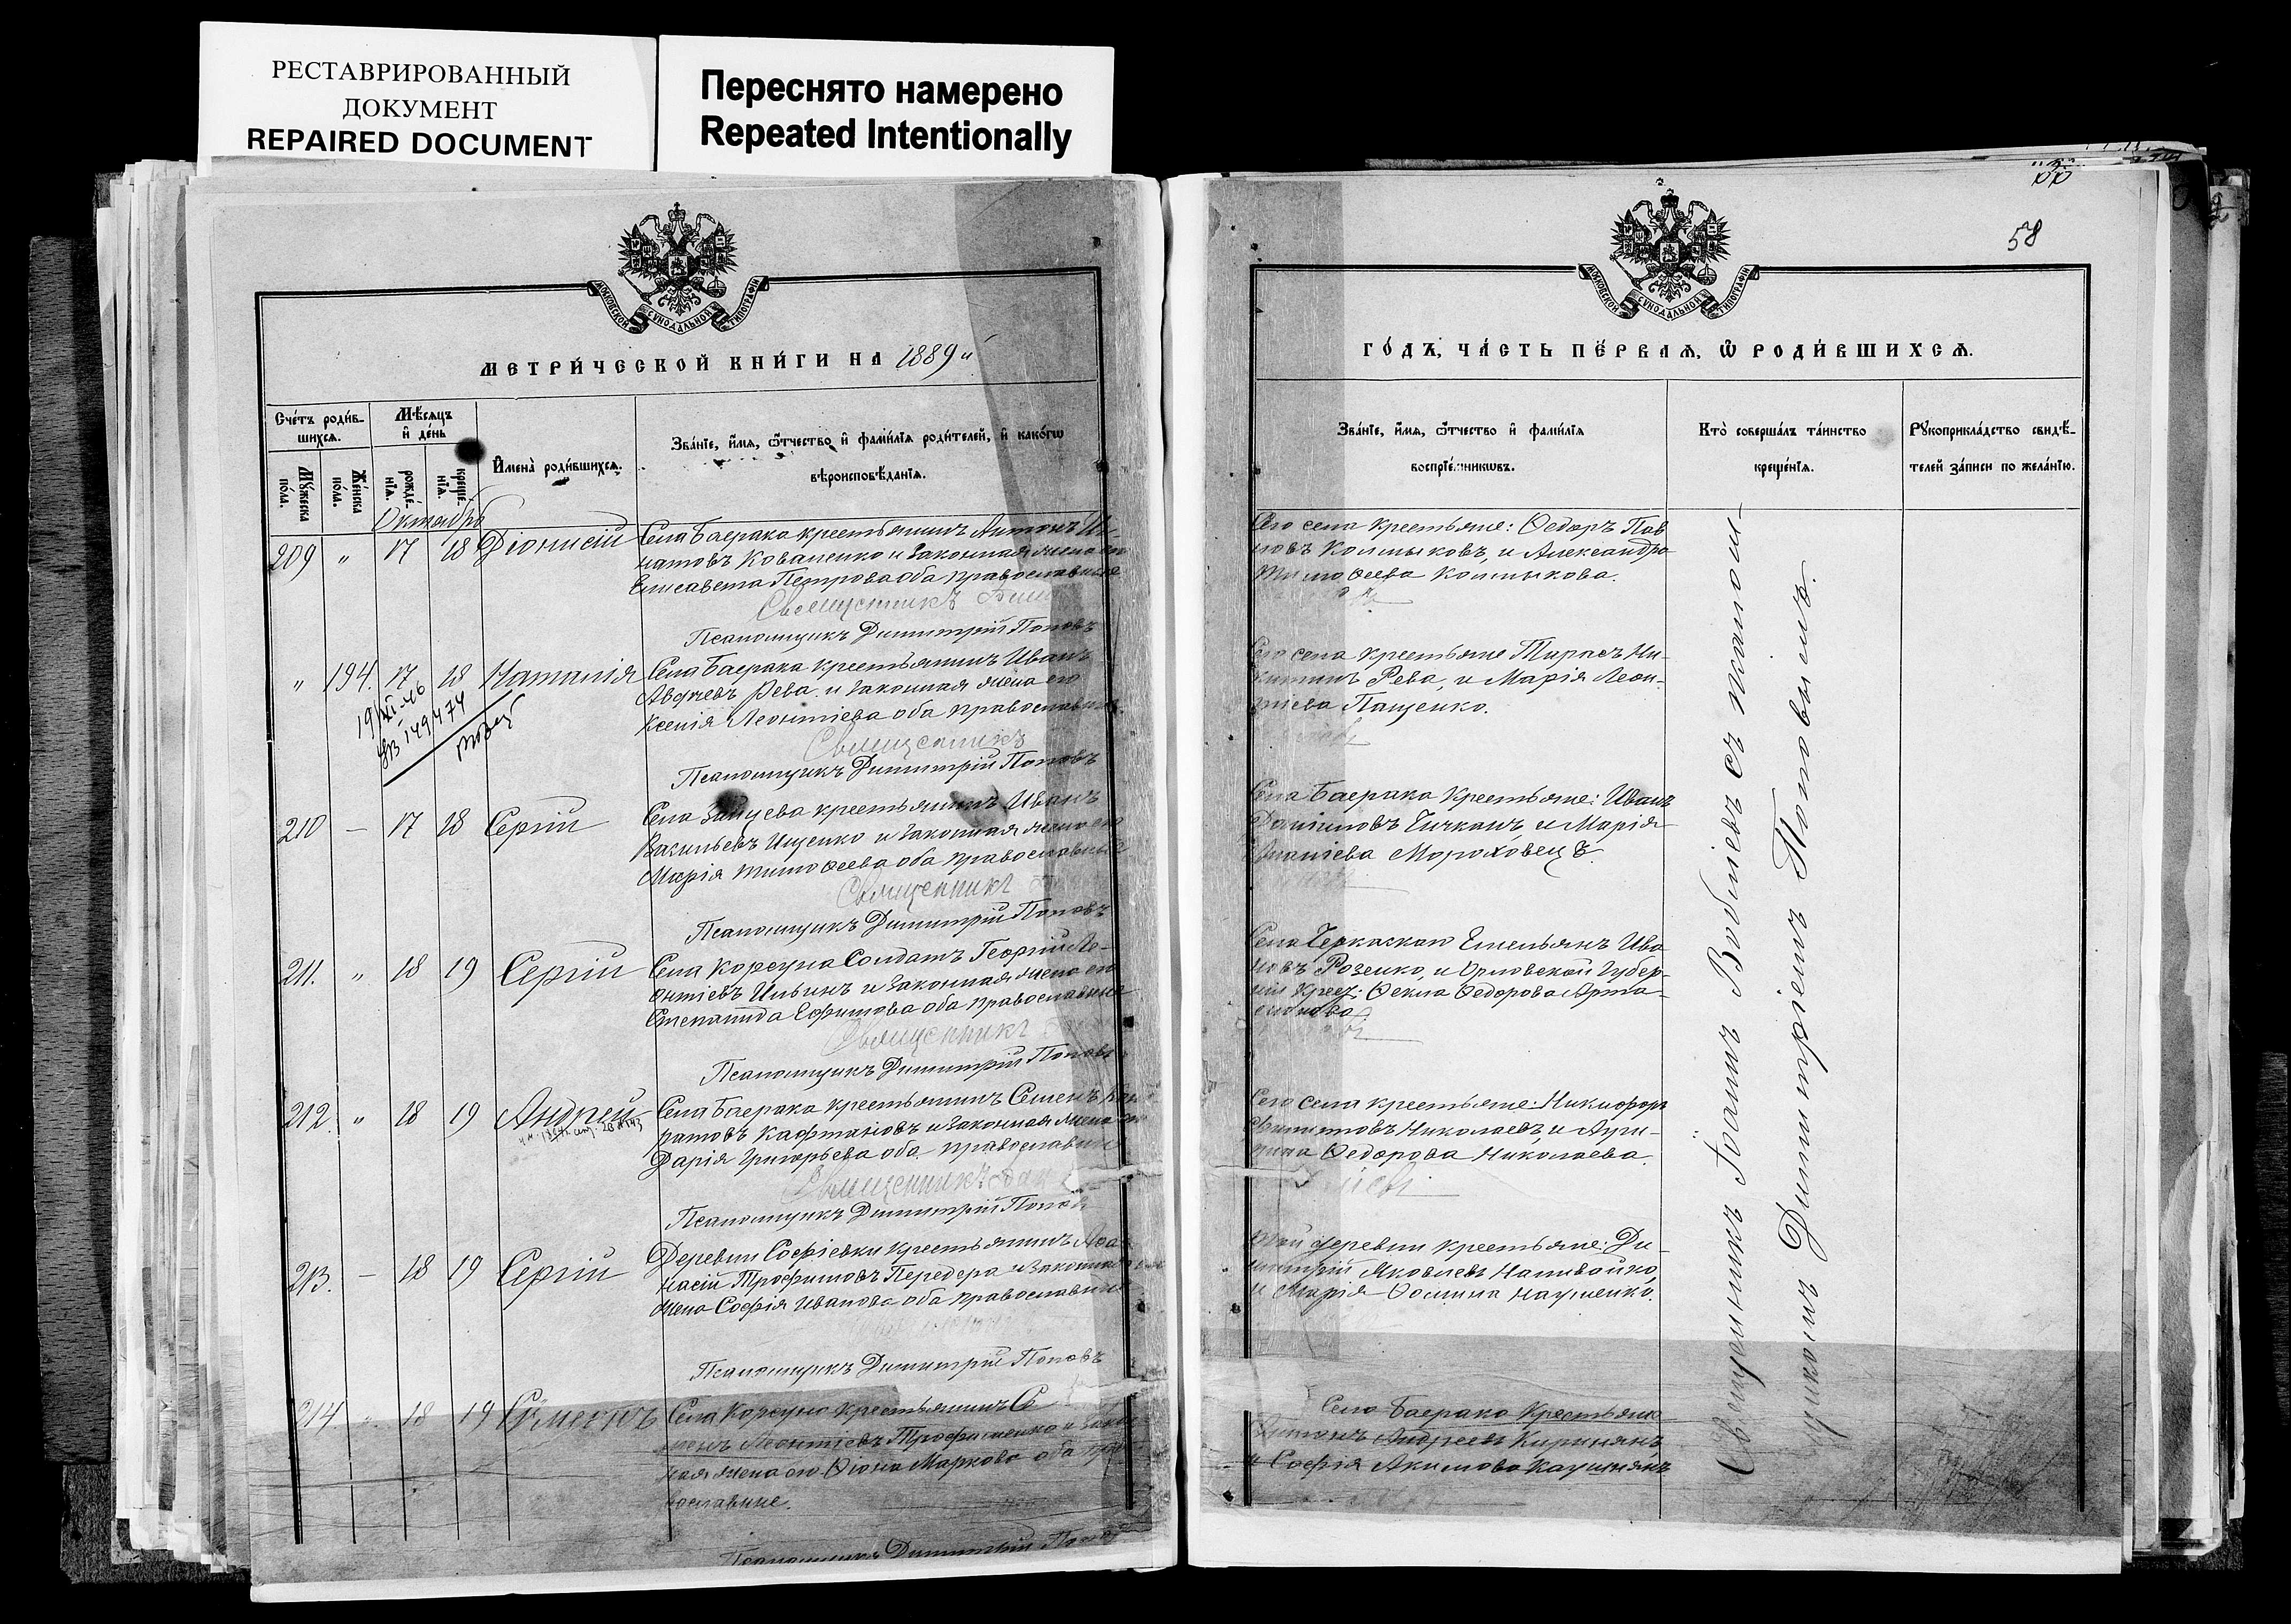 РЕСТАВРИРОВАННЫЙ
ДОКУМЕНТ
REPAIRED DOCUMENT
Переснято намерено
Repeated Intentionally
58
МОСКОВСКОЙ СѴНОДАЛЬНОЙ ТИПОГРАФІИ
МЕТРИ́ЧЕСКОЙ КНИ́ГИ НА 1889
Сче́тъ роди́в-
шихсѧ.
Мѣ́сѧцъ
и де́нь
Мꙋ́жеска по́ла.
Же́нска по́ла.
рожде́-
нїѧ.
креще́-
нїѧ.
Имена̀ роди́вшихсѧ.
Зва́нїе, и́мѧ, ѻ҆́тчество и фами́лїѧ роди́телей, и како́гѡ
вѣроисповѣ́данїѧ.
Октябрь
209 " 17 18 Діонисій
Села Баерака крестьянинъ Антонъ Иг-
натовъ Коваленко и законная жена его
Елисавета Петрова оба православные
Священникъ
Псаломщикъ Димитрій Поповъ
" 194. 17 18 Наталія
Села Баерака крестьянинъ Иванъ
Авдѣевъ Рева и законная жена его
Ксенія Леонтіева оба православн.
19/XI-46
149474
Священникъ
Псаломщикъ Димитрій Поповъ
210 — 17 18 Сергій
Села Зайцева крестьянинъ Иванъ
Васильевъ Ищенко и законная жена его
Марія Тимоѳеева оба православные
Священникъ
Псаломщикъ Димитрій Поповъ
211. " 18 19 Сергій
Села Корсуна Солдатъ Георгій Ле-
онтіевъ Ильинъ и законная жена его
Степанида Ефимова оба православные
Священникъ
Псаломщикъ Димитрій Поповъ
212. " 18 19 Андрей
Села Баерака крестьянинъ Семенъ
ратовъ Кафтановъ и законная жена его
Дарія Григорьева оба православн
Священникъ
Псаломщикъ Димитрій Поповъ
213. — 18 19 Сергій
Деревни Софіевки крестьянинъ Аѳа-
насій Трофимовъ Передера и законная
жена Софія Иванова оба православны
Псаломщикъ Димитрій Поповъ
214. " 18 19 Сѵмеонъ
Села Корсуна крестьянинъ Се
менъ Леонтіевъ Трофименко и закон
ная жена его Ѳіона Маркова оба пра
вославные.
Псаломщикъ Димитрій Поповъ
МОСКОВСКОЙ СѴНОДАЛЬНОЙ ТИПОГРАФІИ
ГО́ДЪ, ЧА́СТЬ ПЕ́РВАѦ, Ѡ҆ РОДИ́ВШИХСѦ.
Зва́нїе, и́мѧ, ѻ҆́тчество и фами́лїѧ
воспрїе́мникѡвъ.
Кто̀ соверша́лъ та́инство
креще́нїѧ.
Рꙋкоприкла́дство свидѣ́-
телей за́писи по жела́нїю.
Сего села крестьяне: Ѳедоръ Пав
ловъ Колмыковъ, и Александра
Тимоѳеева Колмыкова.
Сего села крестьяне Тарасъ Ни-
китинъ Рева, и Марія Леон-
тіева Пащенко.
Села Баерака крестьяне: Иванъ
Даниловъ Чичканъ и Марія
Ананіева Мороховецъ.
Села Черкаскаго Емельянъ Ива
новъ Розенко, и Орловской Губер-
ніи крес: Ѳекла Ѳедорова Арта-
монова
Сего села крестьяне: Никифоръ
Филиповъ Николаевъ, и Агри-
пина Ѳедорова Николаева.
Той деревни крестьяне: Ди-
митрій Яковлевъ Наливайко,
и Марія Ѳомина Науменко.
Села Баерака Крестьяне
Антонъ Андреевъ Кириянъ
и Софія Акимова
Священникъ Іоаннъ съ псалом-
щикомъ Димитріемъ Поповымъ.